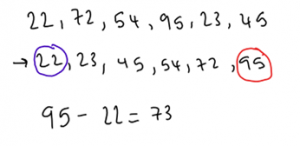 22, 72, 54, 95, 23, 45
→ 22, 23, 45, 54, 72, 95
95 - 22 = 73